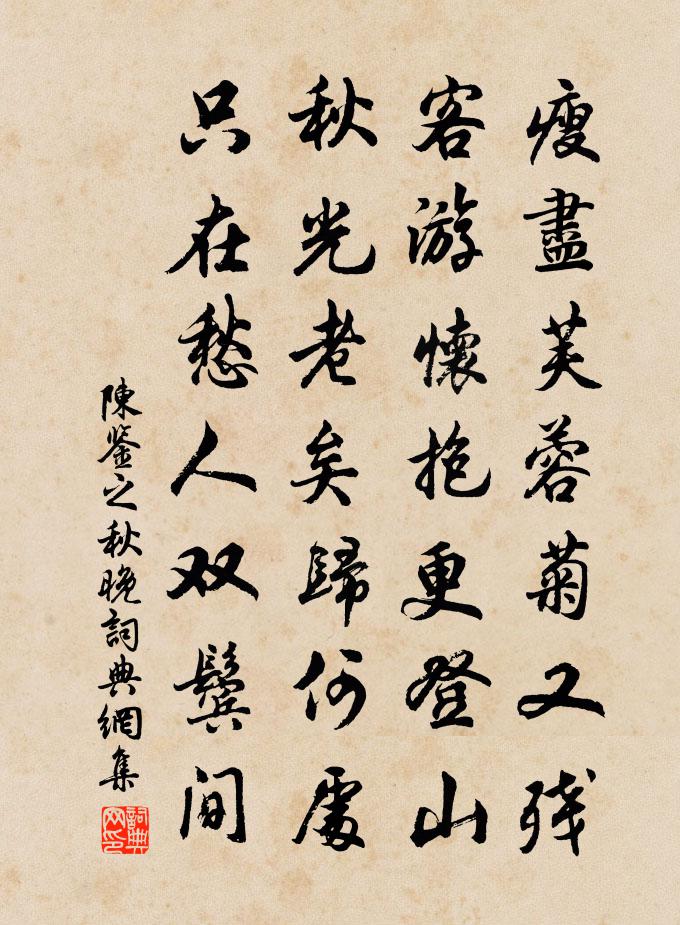 瘦盡芙蓉菊又残
客游懷抱更登山
秋光老矣歸何處
只在愁人双鬢间
陳鉴之秋晚詞典網集
詞典
网印